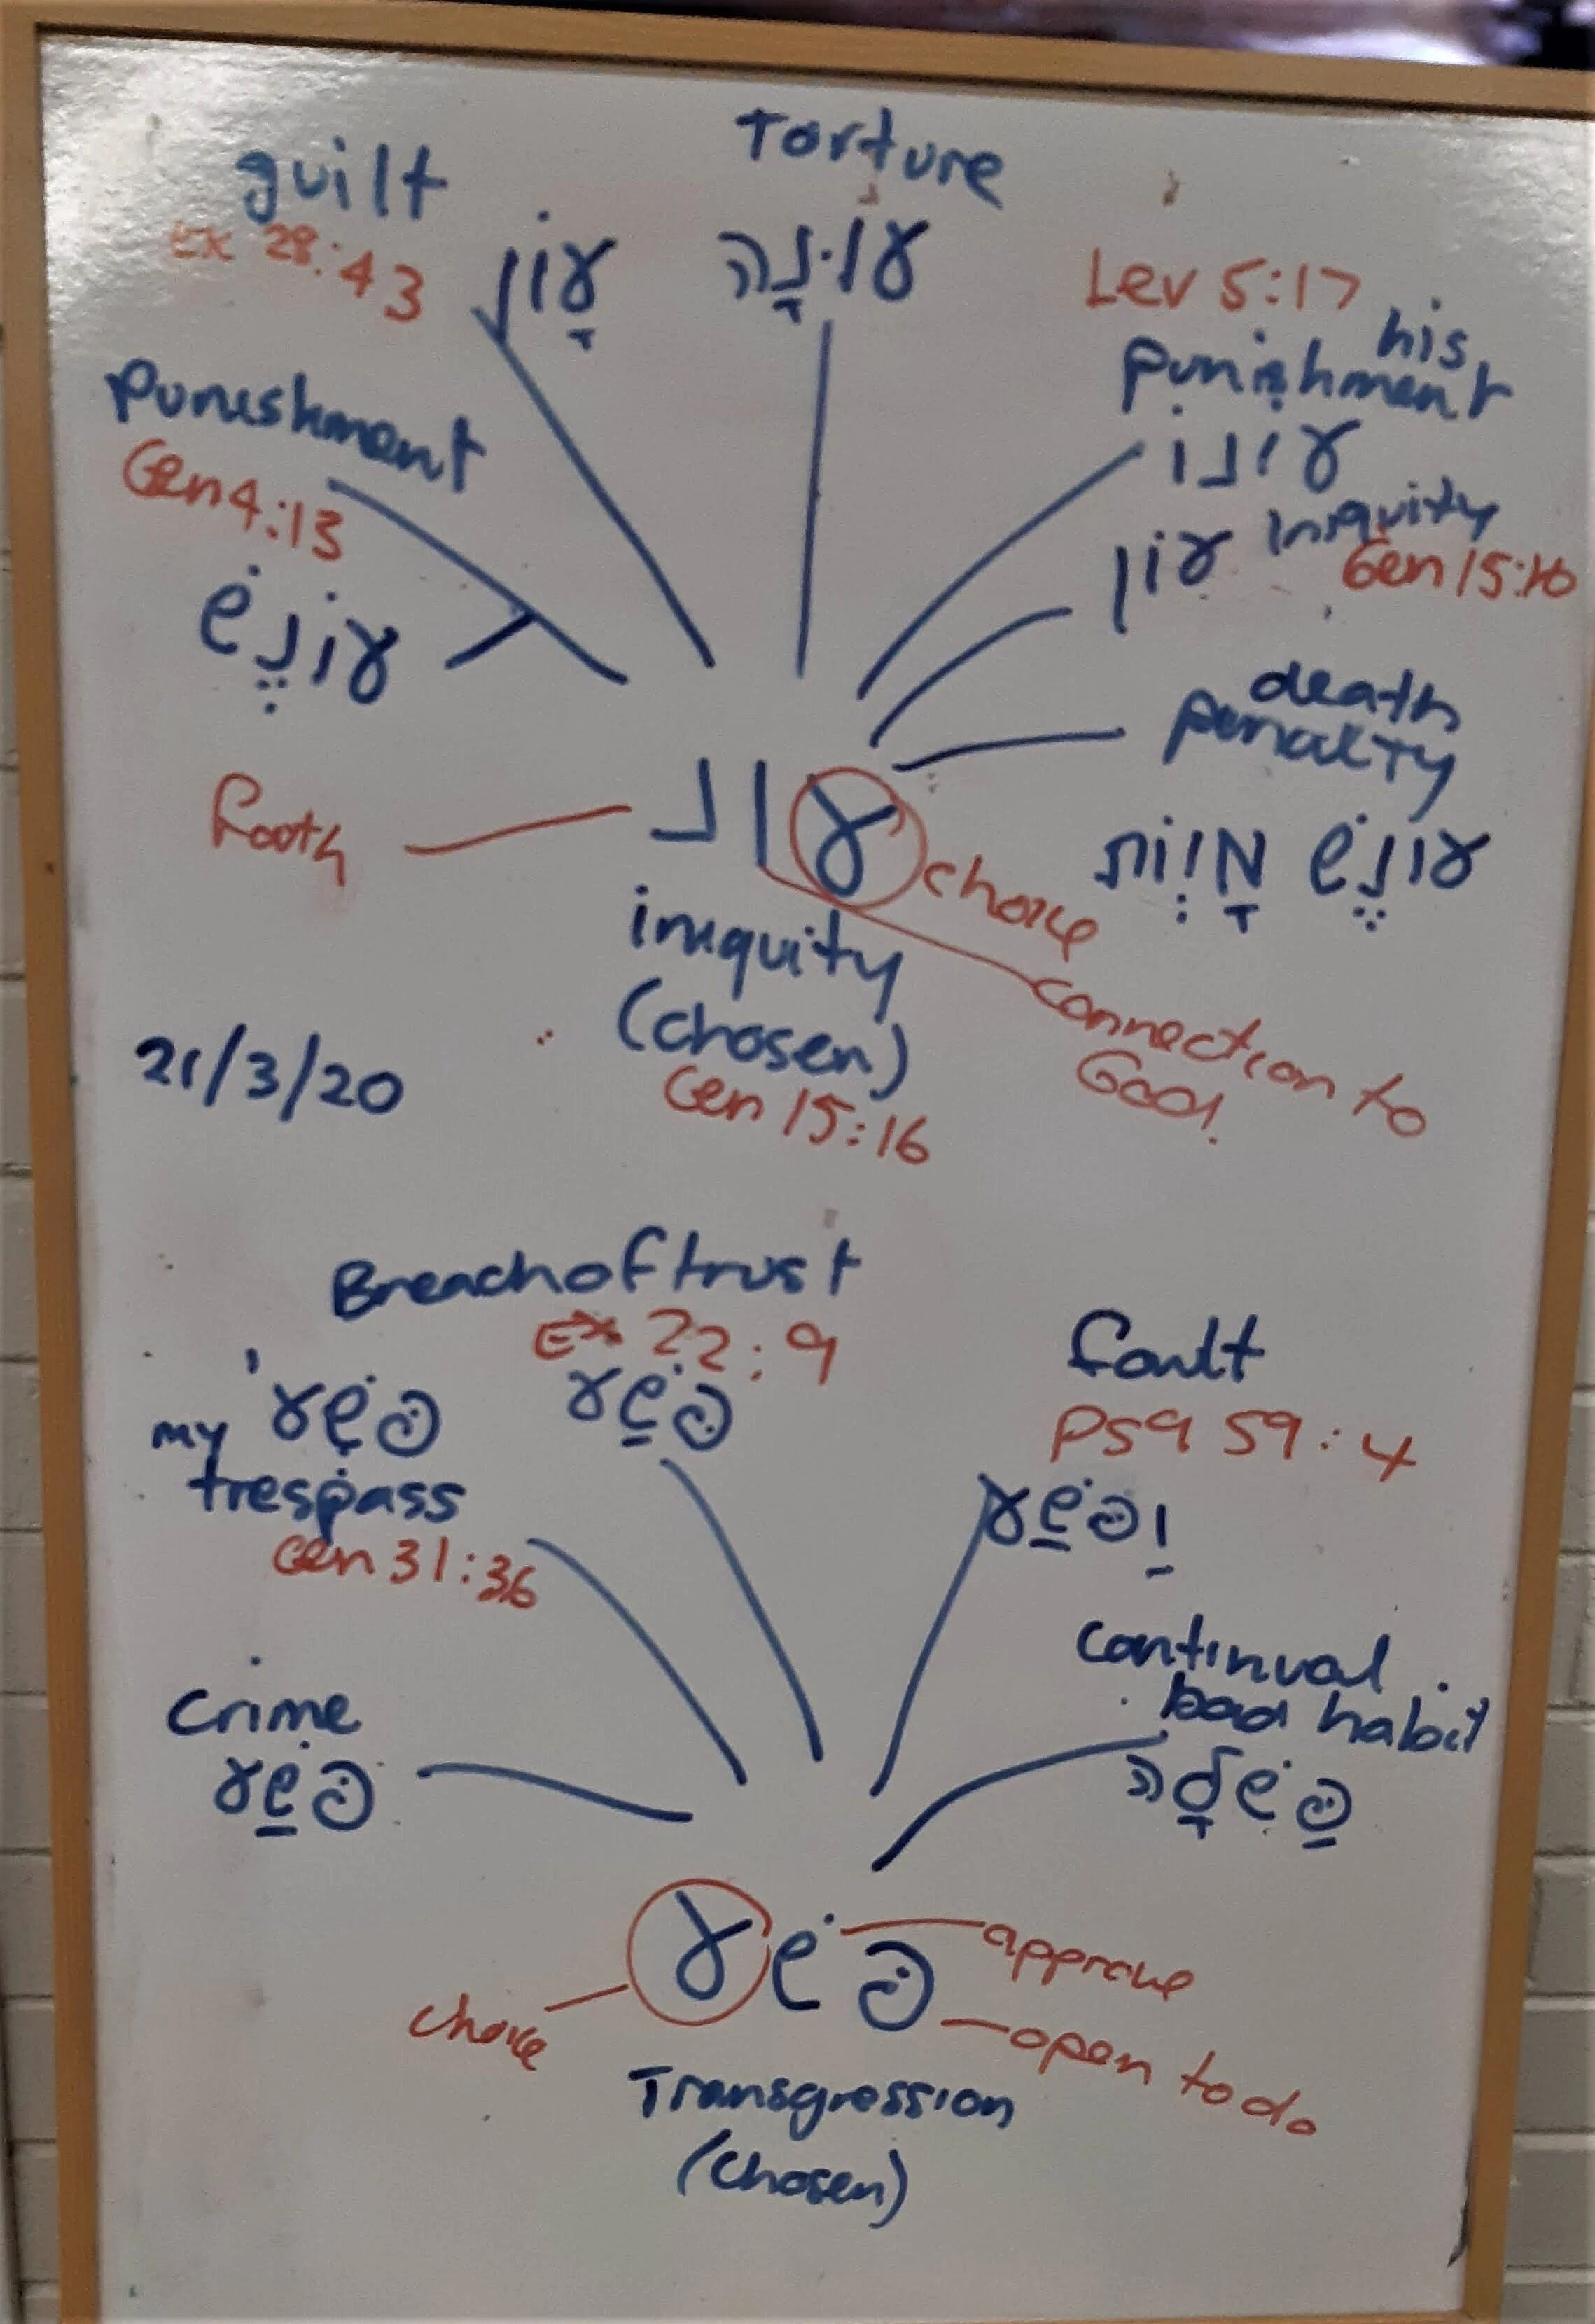 Torture
guilt
Ex 28:43
עָוֹן
עוּנָה
Lev 5:17
his
punishment
עוֹנוֹ
Punishment
Gen 4:13
עוֹנֶשׁ
עוֹן Iniquity
Gen 15:16
death
penalty
עוֹנֶשׁ מָוְות
Faith
עונ
choice
connection to
God!
iniquity
(chosen)
Gen 15:16
21/3/20
Breach of trust
Ex 22:9
פֶּשַׁע
פִּשְׁעִי
my
trespass
Gen 31:36
Fault
Psa 59:4
וַפֶּשַׁע
continual
bad habit
Crime
פֶּשַׁע
פשע
approve
choice
open to do
Transgression
(chosen)